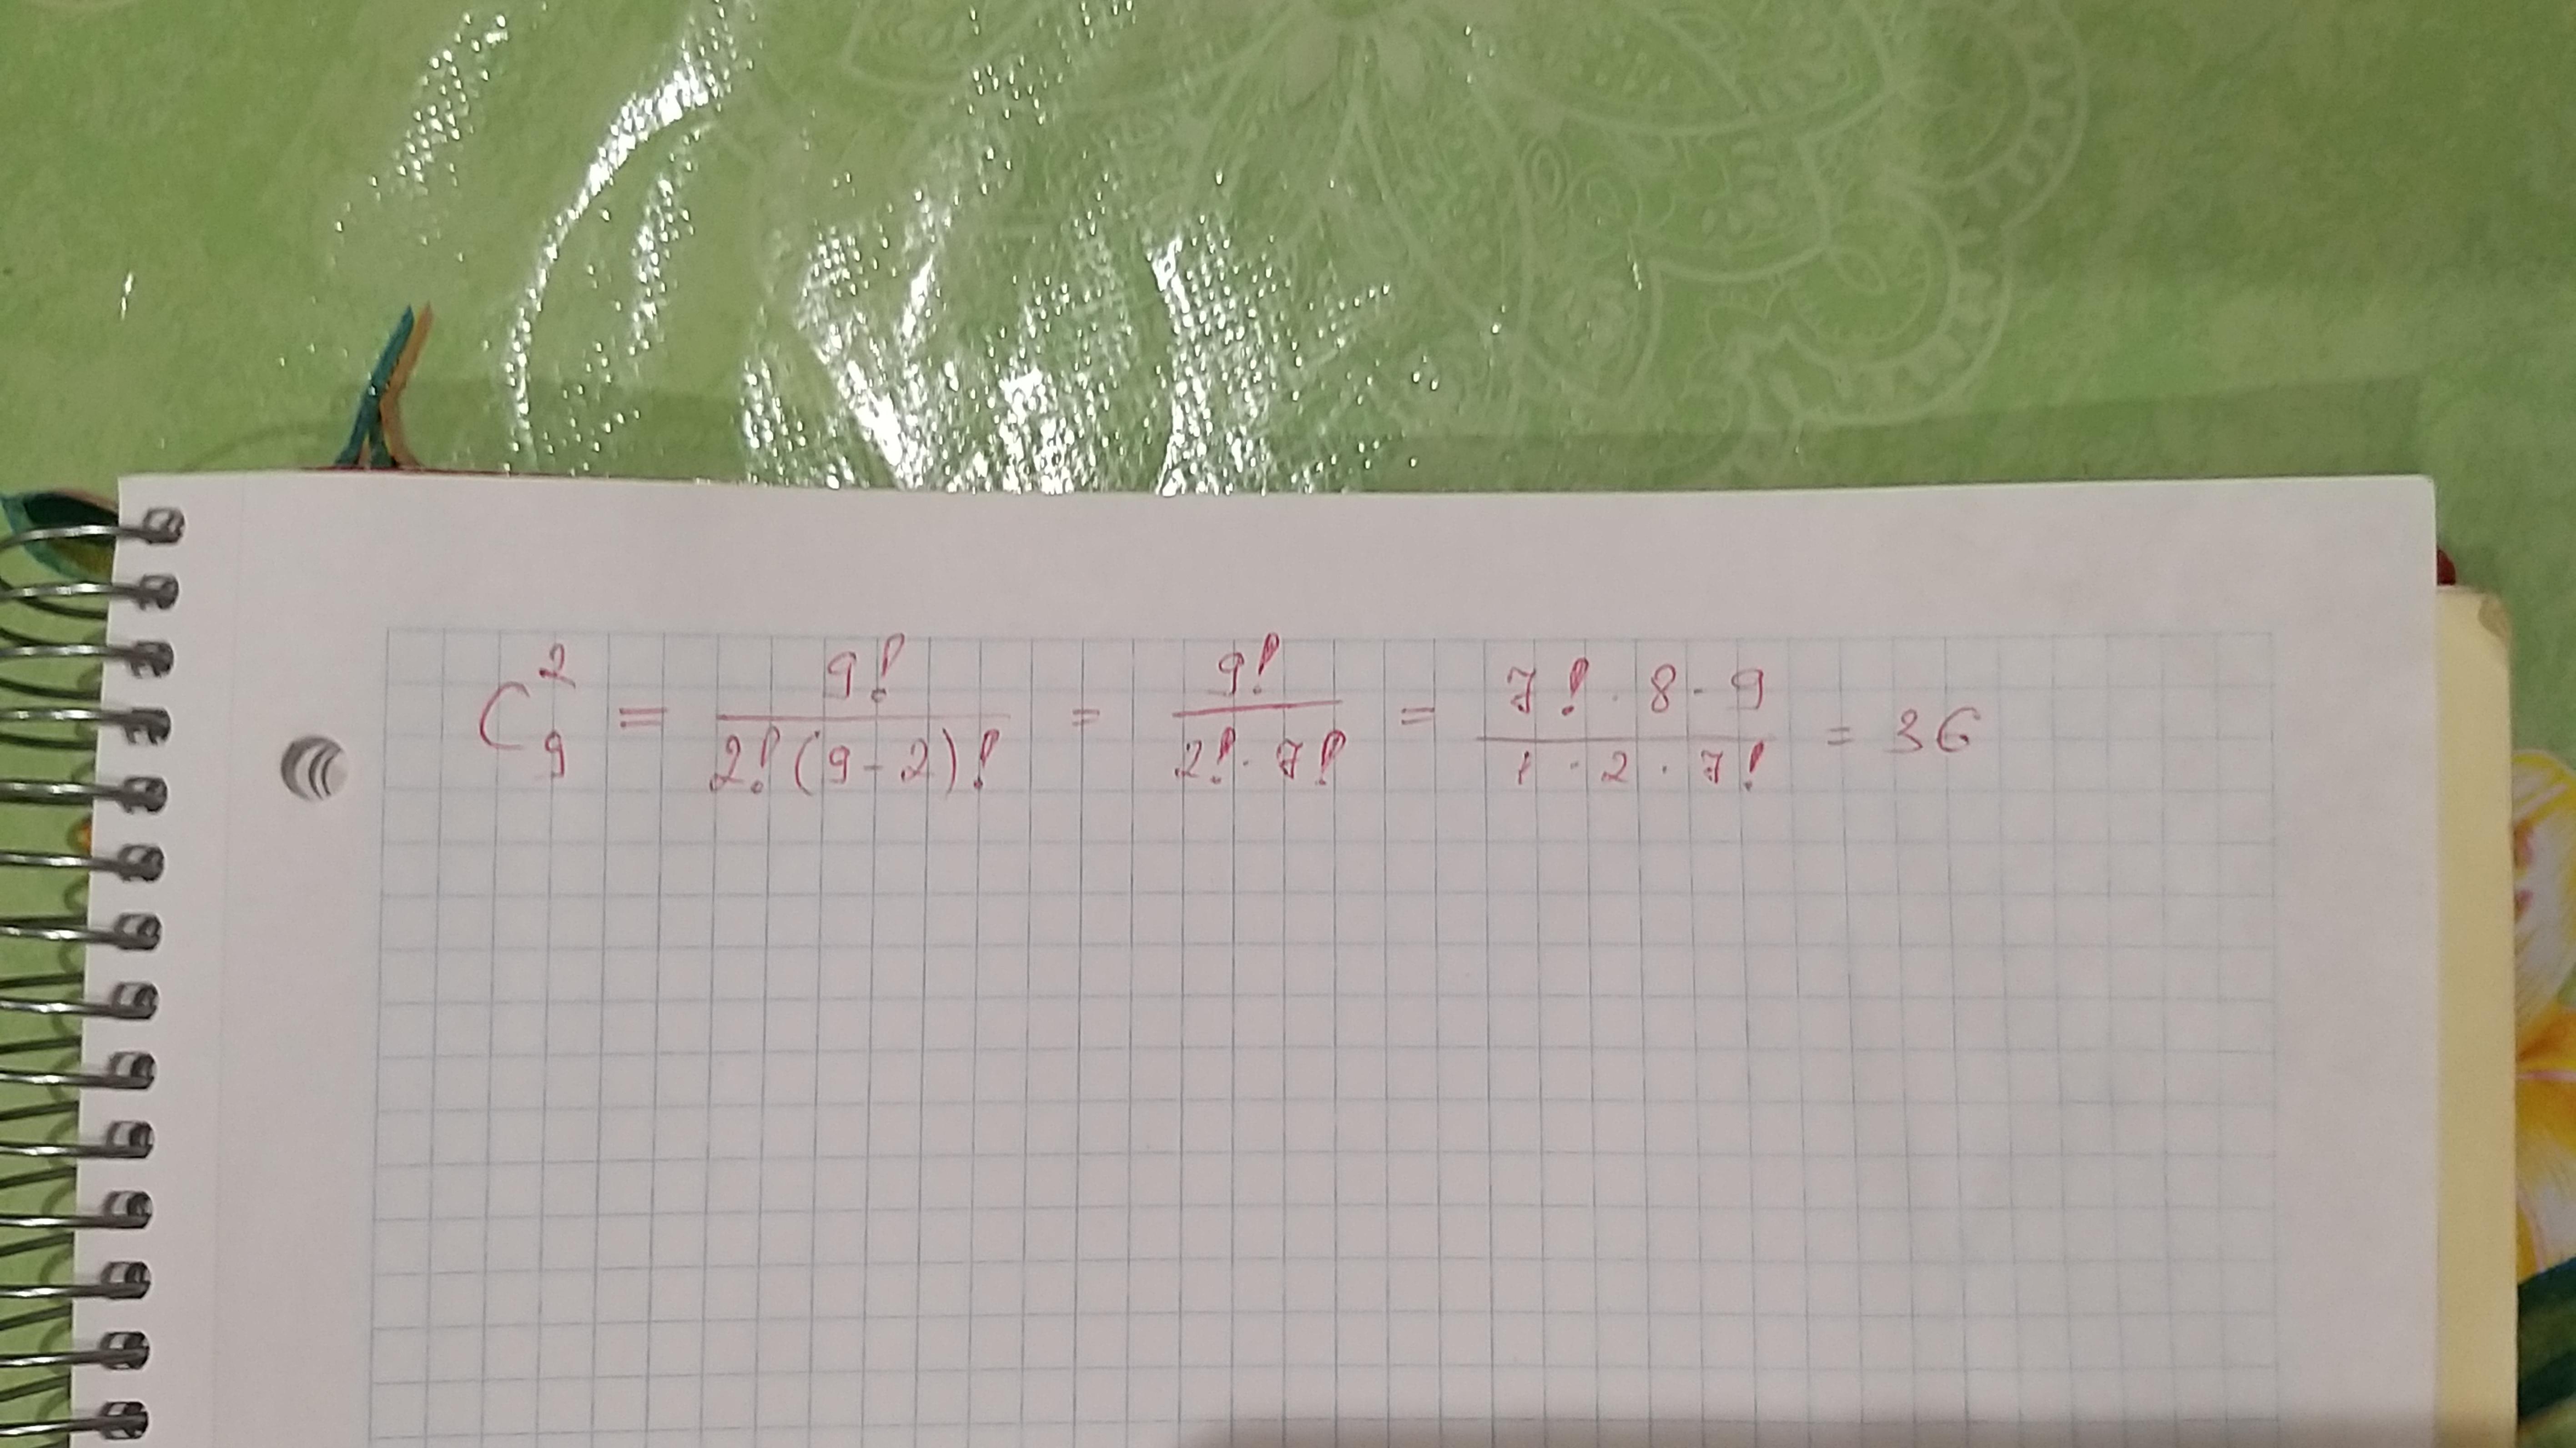 C₉² = 9!/(2!(9-2)!) = 9!/(2!·7!) = (7!·8·9)/(1·2·7!) = 36